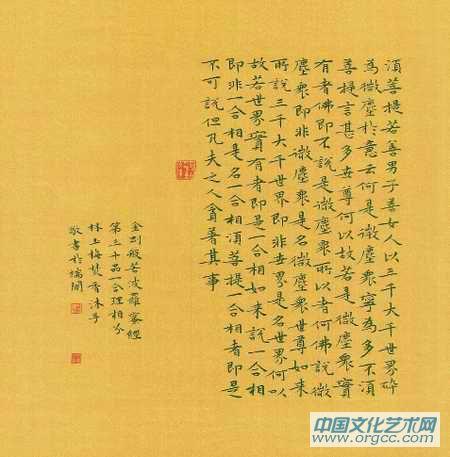 須菩提若善男子善女人以三千大千世界碎
為微塵於意云何是微塵衆寧為多不須
菩提言甚多世尊何以故若是微塵衆實
有者佛即不說是微塵衆所以者何佛說微
塵衆即非微塵衆是名微塵衆世尊如來
所說三千大千世界即非世界是名世界何以
故若世界實有者即是一合相如來說一合相
即非一合相是名一合相須菩提一合相者即是
不可說但凡夫之人貪著其事
金剛般若波羅蜜經
第三十品一合理相分
林玉梅焚香沐手
敬書於瑞閣
中国文化艺术网
www.orgcc.com